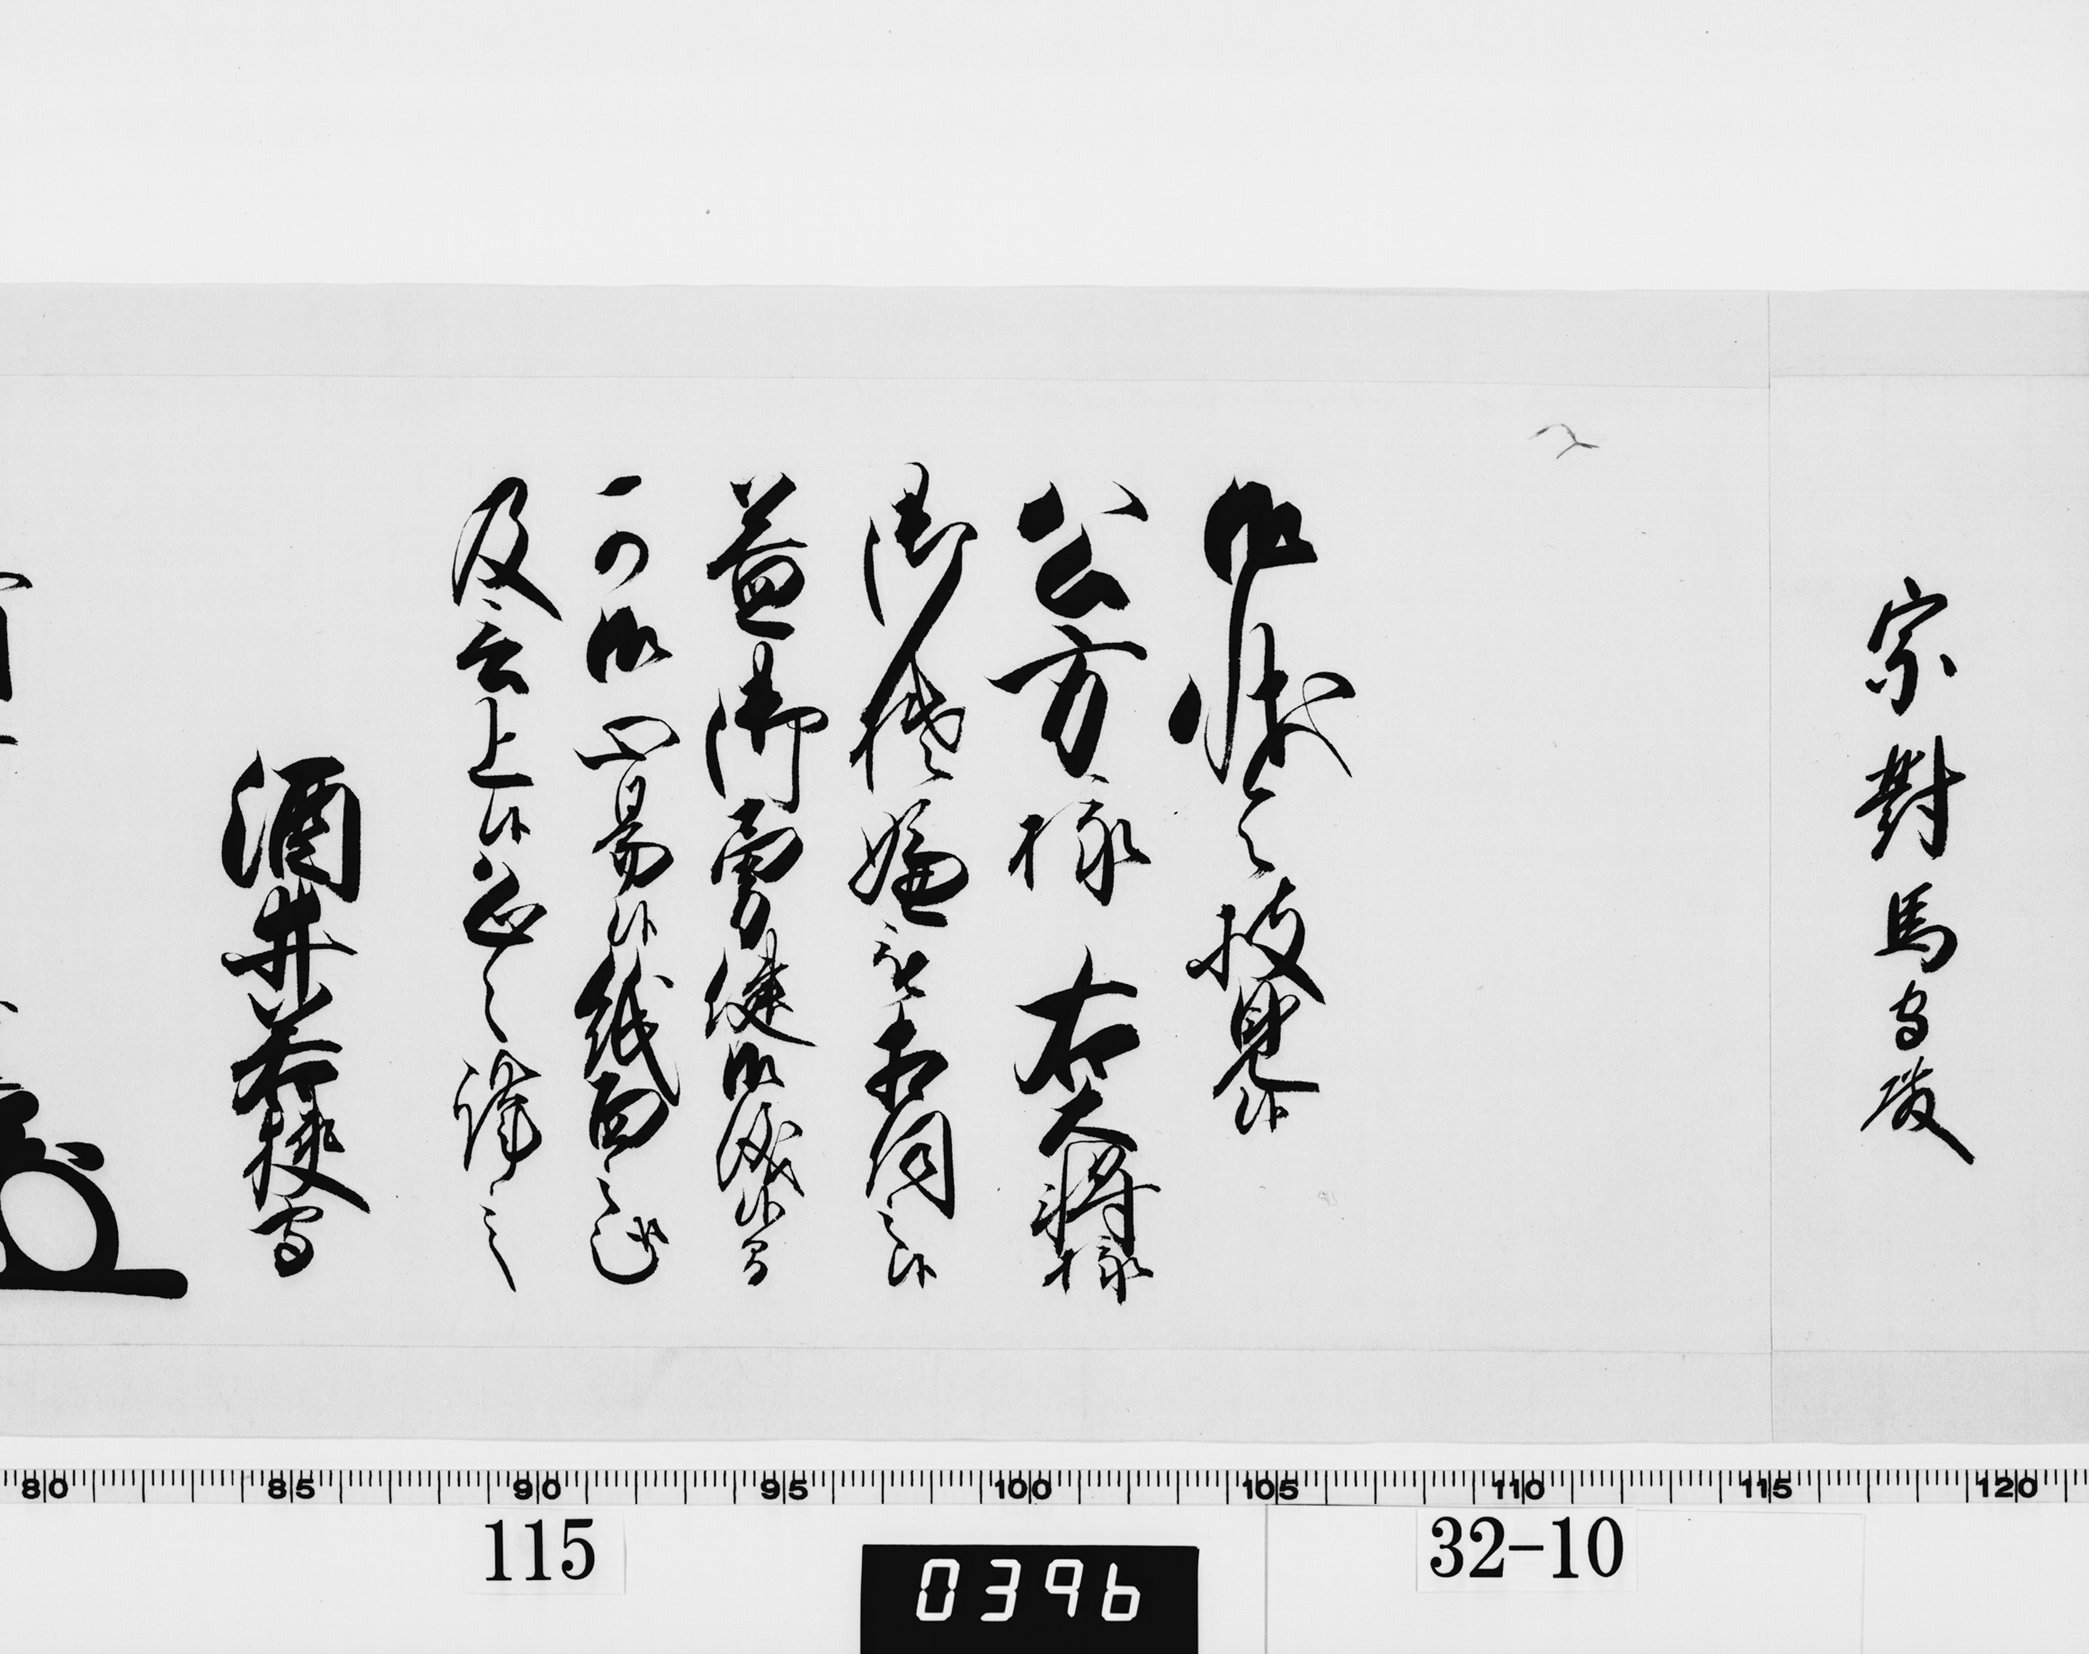 宗對馬守殿
御状令披見候
公方様右大将様
御機嫌被相伺之候
益御勇健御成候間
可御心易候紙面之趣
及言上候恐々謹言
酒井若狭守
80 85 90 95 100 105 110 115 120
115
0396
32-10